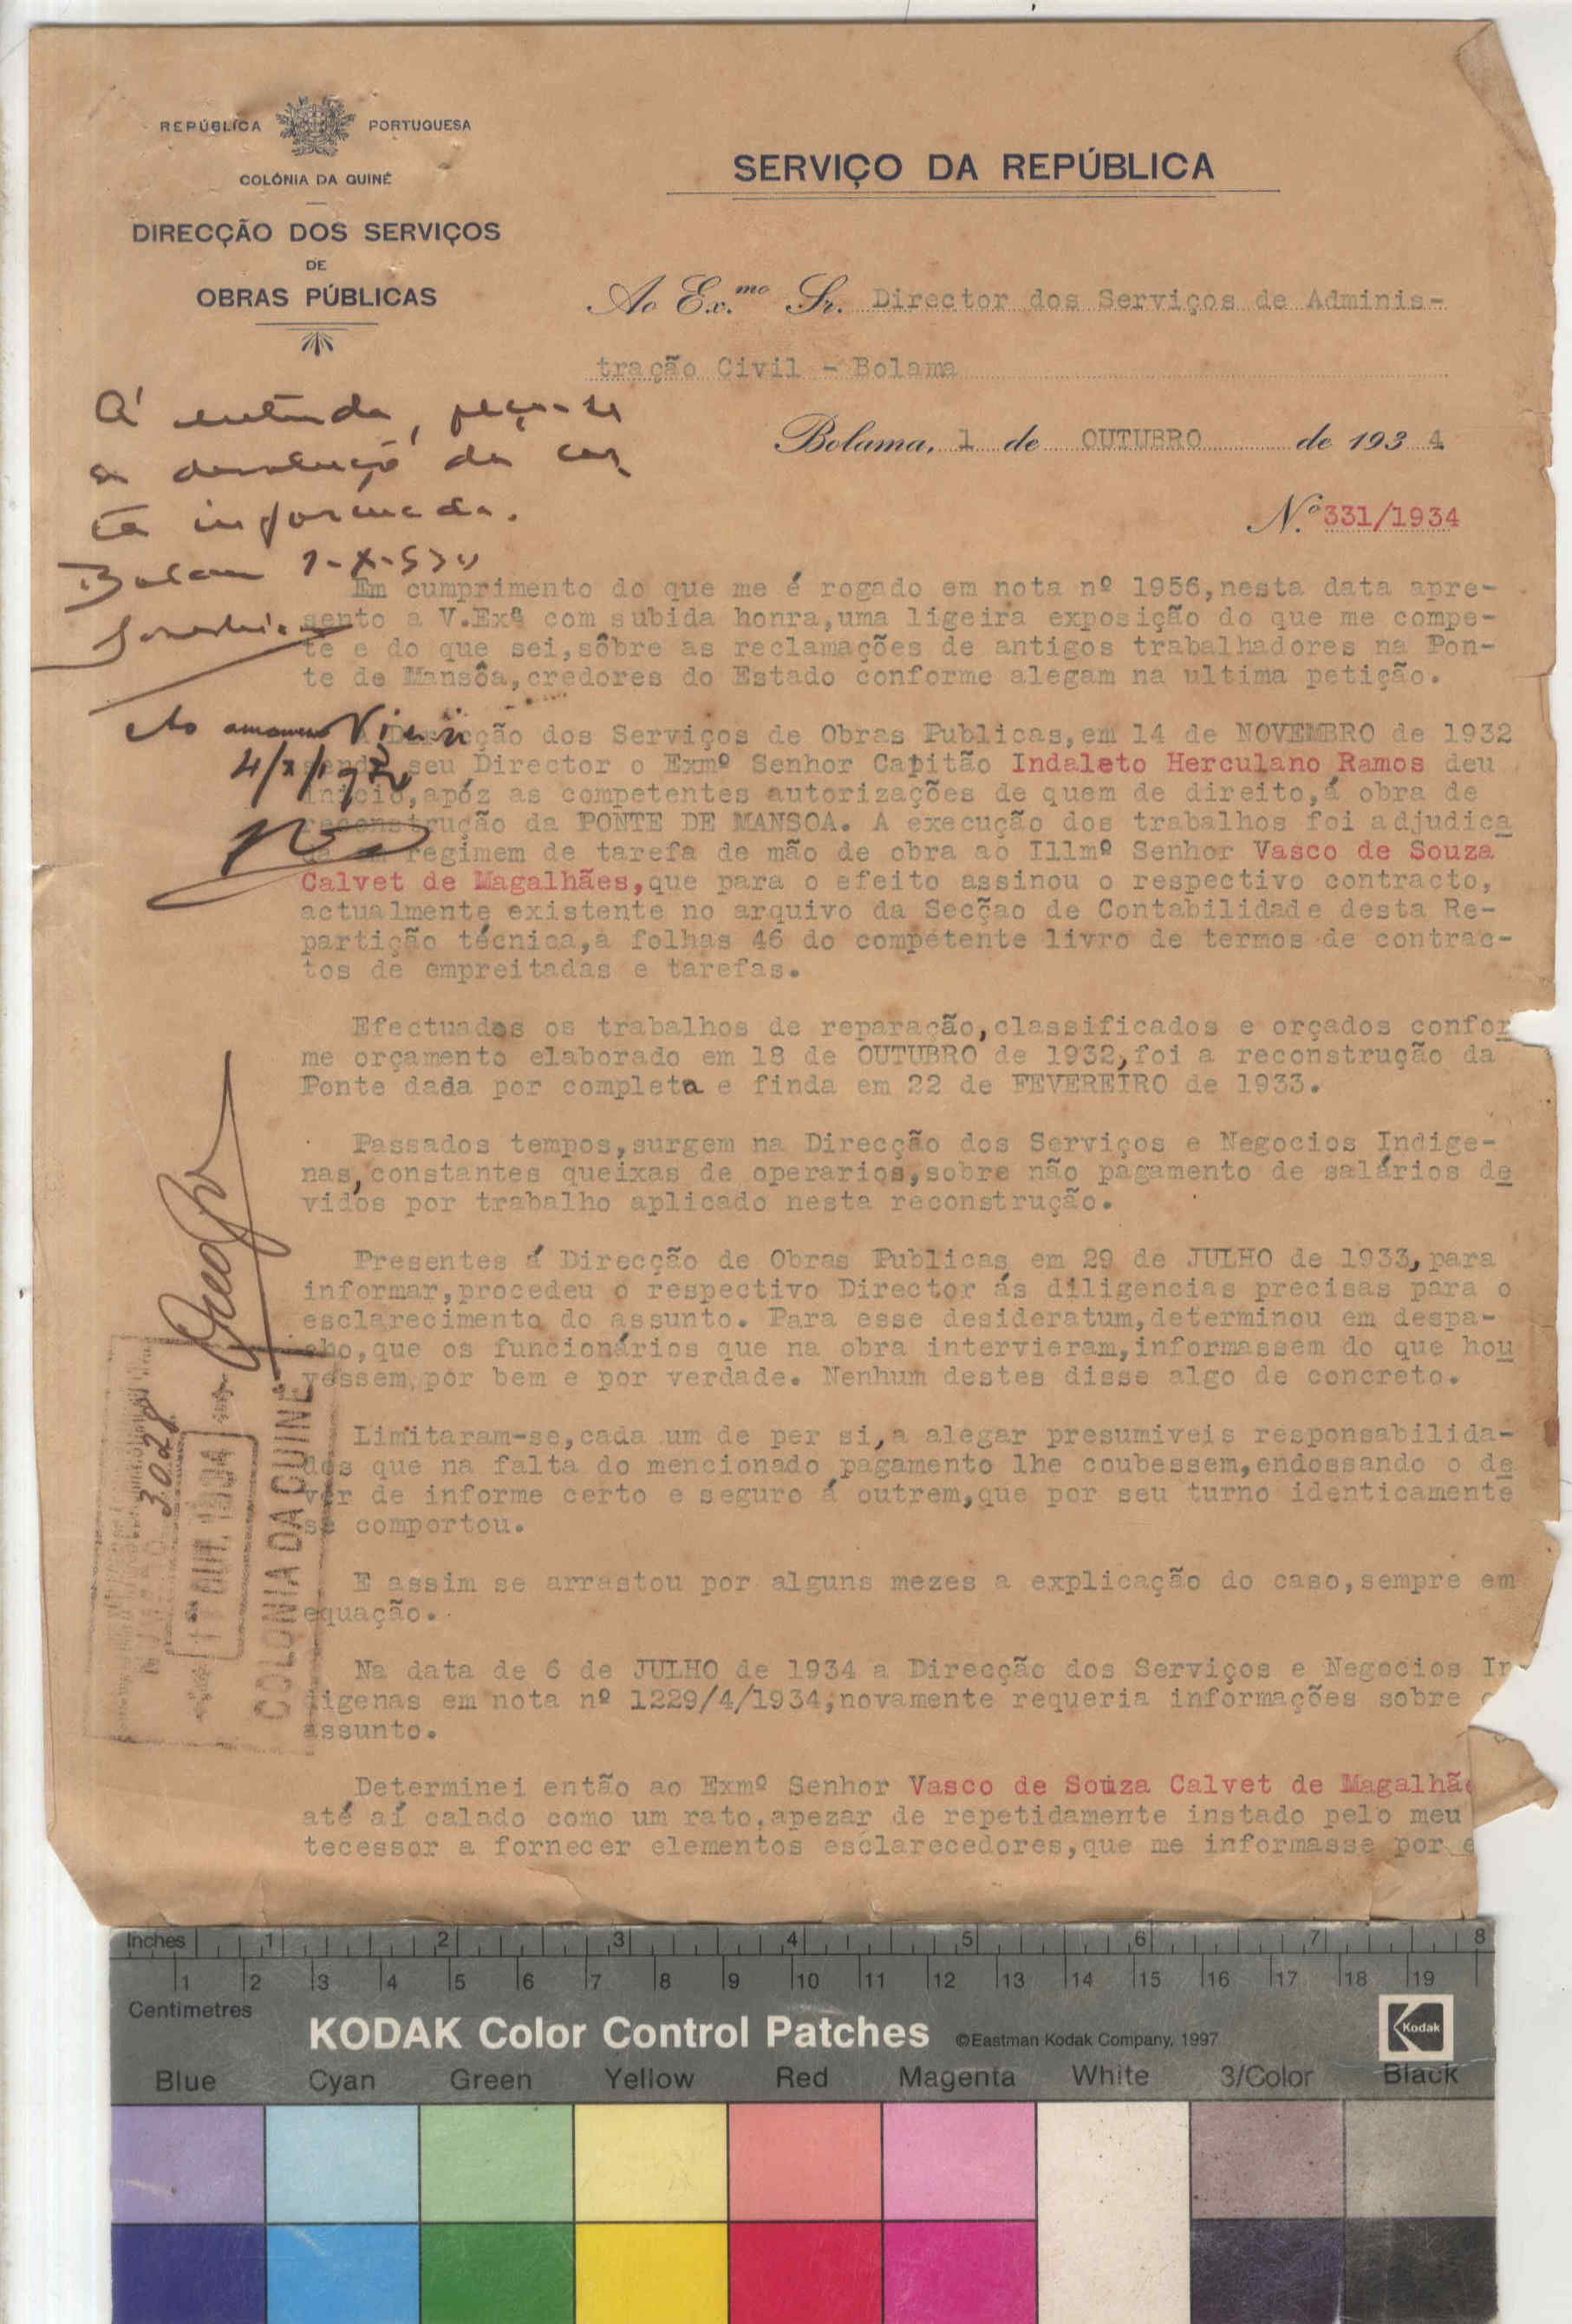 REPÚBLICA PORTUGUESA
COLÓNIA DA GUINÉ
DIRECÇÃO DOS SERVIÇOS
DE
OBRAS PÚBLICAS
SERVIÇO DA REPÚBLICA
Ao Ex.mo Sr. Director dos Serviços de Adminis-
tração Civil - Bolama
Bolama, 1 de OUTUBRO de 1934
N.º 331/1934
Á entrada, peça-se
a devolução da car
ta informada.
Em cumprimento do que me é rogado em nota nº 1956,nesta data apre-
sento a V.Exª com subida honra,uma ligeira exposição do que me compe-
te e do que sei,sôbre as reclamações de antigos trabalhadores na Pon-
te de Mansôa,credores do Estado conforme alegam na ultima petição.
A Direcção dos Serviços de Obras Publicas,em 14 de NOVEMBRO de 1932
sendo seu Director o Exmº Senhor Capitão Indaleto Herculano Ramos deu
inicio,apóz as competentes autorizações de quem de direito,á obra de
reconstrução da PONTE DE MANSOA. A execução dos trabalhos foi adjudica
regimem de tarefa de mão de obra ao Illmº Senhor Vasco de Souza
Calvet de Magalhães,que para o efeito assinou o respectivo contracto,
actualmente existente no arquivo da Secção de Contabilidade desta Re-
partição técnica,a folhas 46 do competente livro de termos de contrac-
tos de empreitadas e tarefas.
Efectuados os trabalhos de reparação,classificados e orçados confor
me orçamento elaborado em 18 de OUTUBRO de 1932,foi a reconstrução da
Ponte dada por completa e finda em 22 de FEVEREIRO de 1933.
Passados tempos,surgem na Direcção dos Serviços e Negocios Indige-
nas,constantes queixas de operarios,sobre não pagamento de salários de
vidos por trabalho aplicado nesta reconstrução.
Presentes á Direcção de Obras Publicas em 29 de JULHO de 1933,para
informar,procedeu o respectivo Director ás diligencias precisas para o
esclarecimento do assunto. Para esse desideratum,determinou em despa-
cho,que os funcionários que na obra intervieram,informassem do que hou
vessem por bem e por verdade. Nenhum destes disse algo de concreto.
Limitaram-se,cada um de per si,a alegar presumiveis responsabilida-
des que na falta do mencionado pagamento lhe coubessem,endossando o de
ver de informe certo e seguro á outrem,que por seu turno identicamente
se comportou.
E assim se arrastou por alguns mezes a explicação do caso,sempre em
equação.
Na data de 6 de JULHO de 1934 a Direcção dos Serviços e Negocios In
digenas em nota nº 1229/4/1934,novamente requeria informações sobre o
assunto.
Determinei então ao Exmº Senhor Vasco de Souza Calvet de Magalhã
até aí calado como um rato,apezar de repetidamente instado pelo meu
tecessor a fornecer elementos esclarecedores,que me informasse por e
3028
COLONIA DA GUINÉ
Inches 1 2 3 4 5 6 7 8
1 2 3 4 5 6 7 8 9 10 11 12 13 14 15 16 17 18 19
Centimetres
KODAK Color Control Patches ©Eastman Kodak Company, 1997 Kodak
Blue Cyan Green Yellow Red Magenta White 3/Color Black